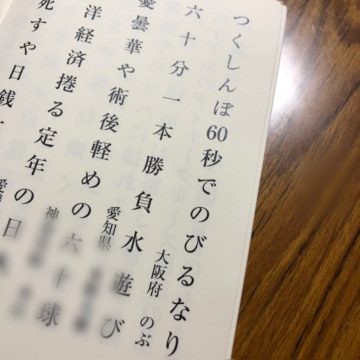 つくしんぼ60秒でのびるなり
大阪府　のぶ
六十分一本勝負水遊び
愛知県
優曇華や術後軽めの六十球
神
洋経済捲る定年の日
死すや日銭